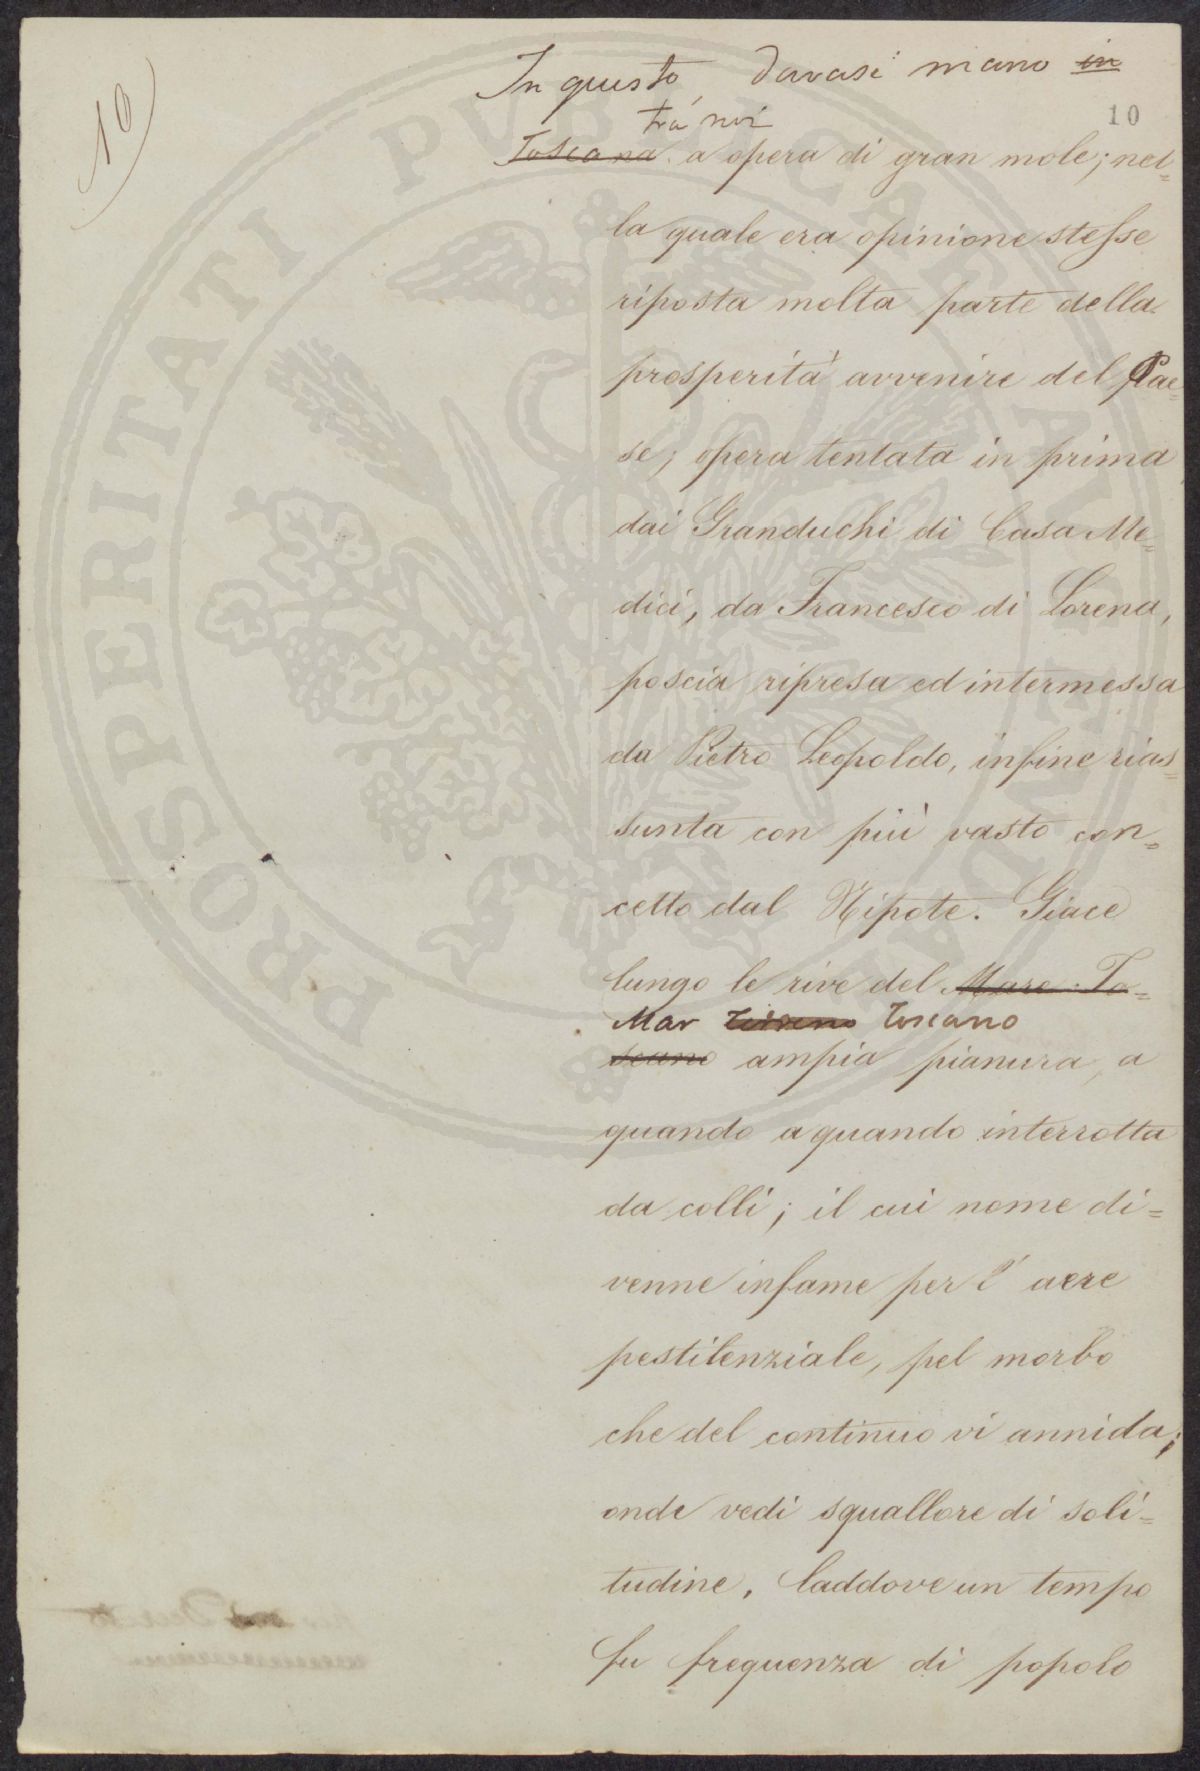 10)
In questo davasi mano in
10
trà noi
Toscana a opera di gran mole; nel=
la quale era opinione stesse
riposta molta parte della
prosperità avvenire del Pae=
se; opera tentata in prima
dai Granduchi di Casa Me=
dici, da Francesco di Lorena,
poscia ripresa ed intermessa
da Pietro Leopoldo, infine rias=
sunta con più vasto con=
cetto dal Nipote. Giace
lungo le rive del Mare To=
Mar Tirreno Toscano
scano ampia pianura, a
quando a quando interrotta
da colli; il cui nome di=
venne infame per l' aere
pestilenziale, pel morbo
che del continuo vi annida;
onde vedi squallore di soli=
tudine, laddove un tempo
fu frequenza di popolo
PROSPERITATI PUBLICAE AUGENDAE